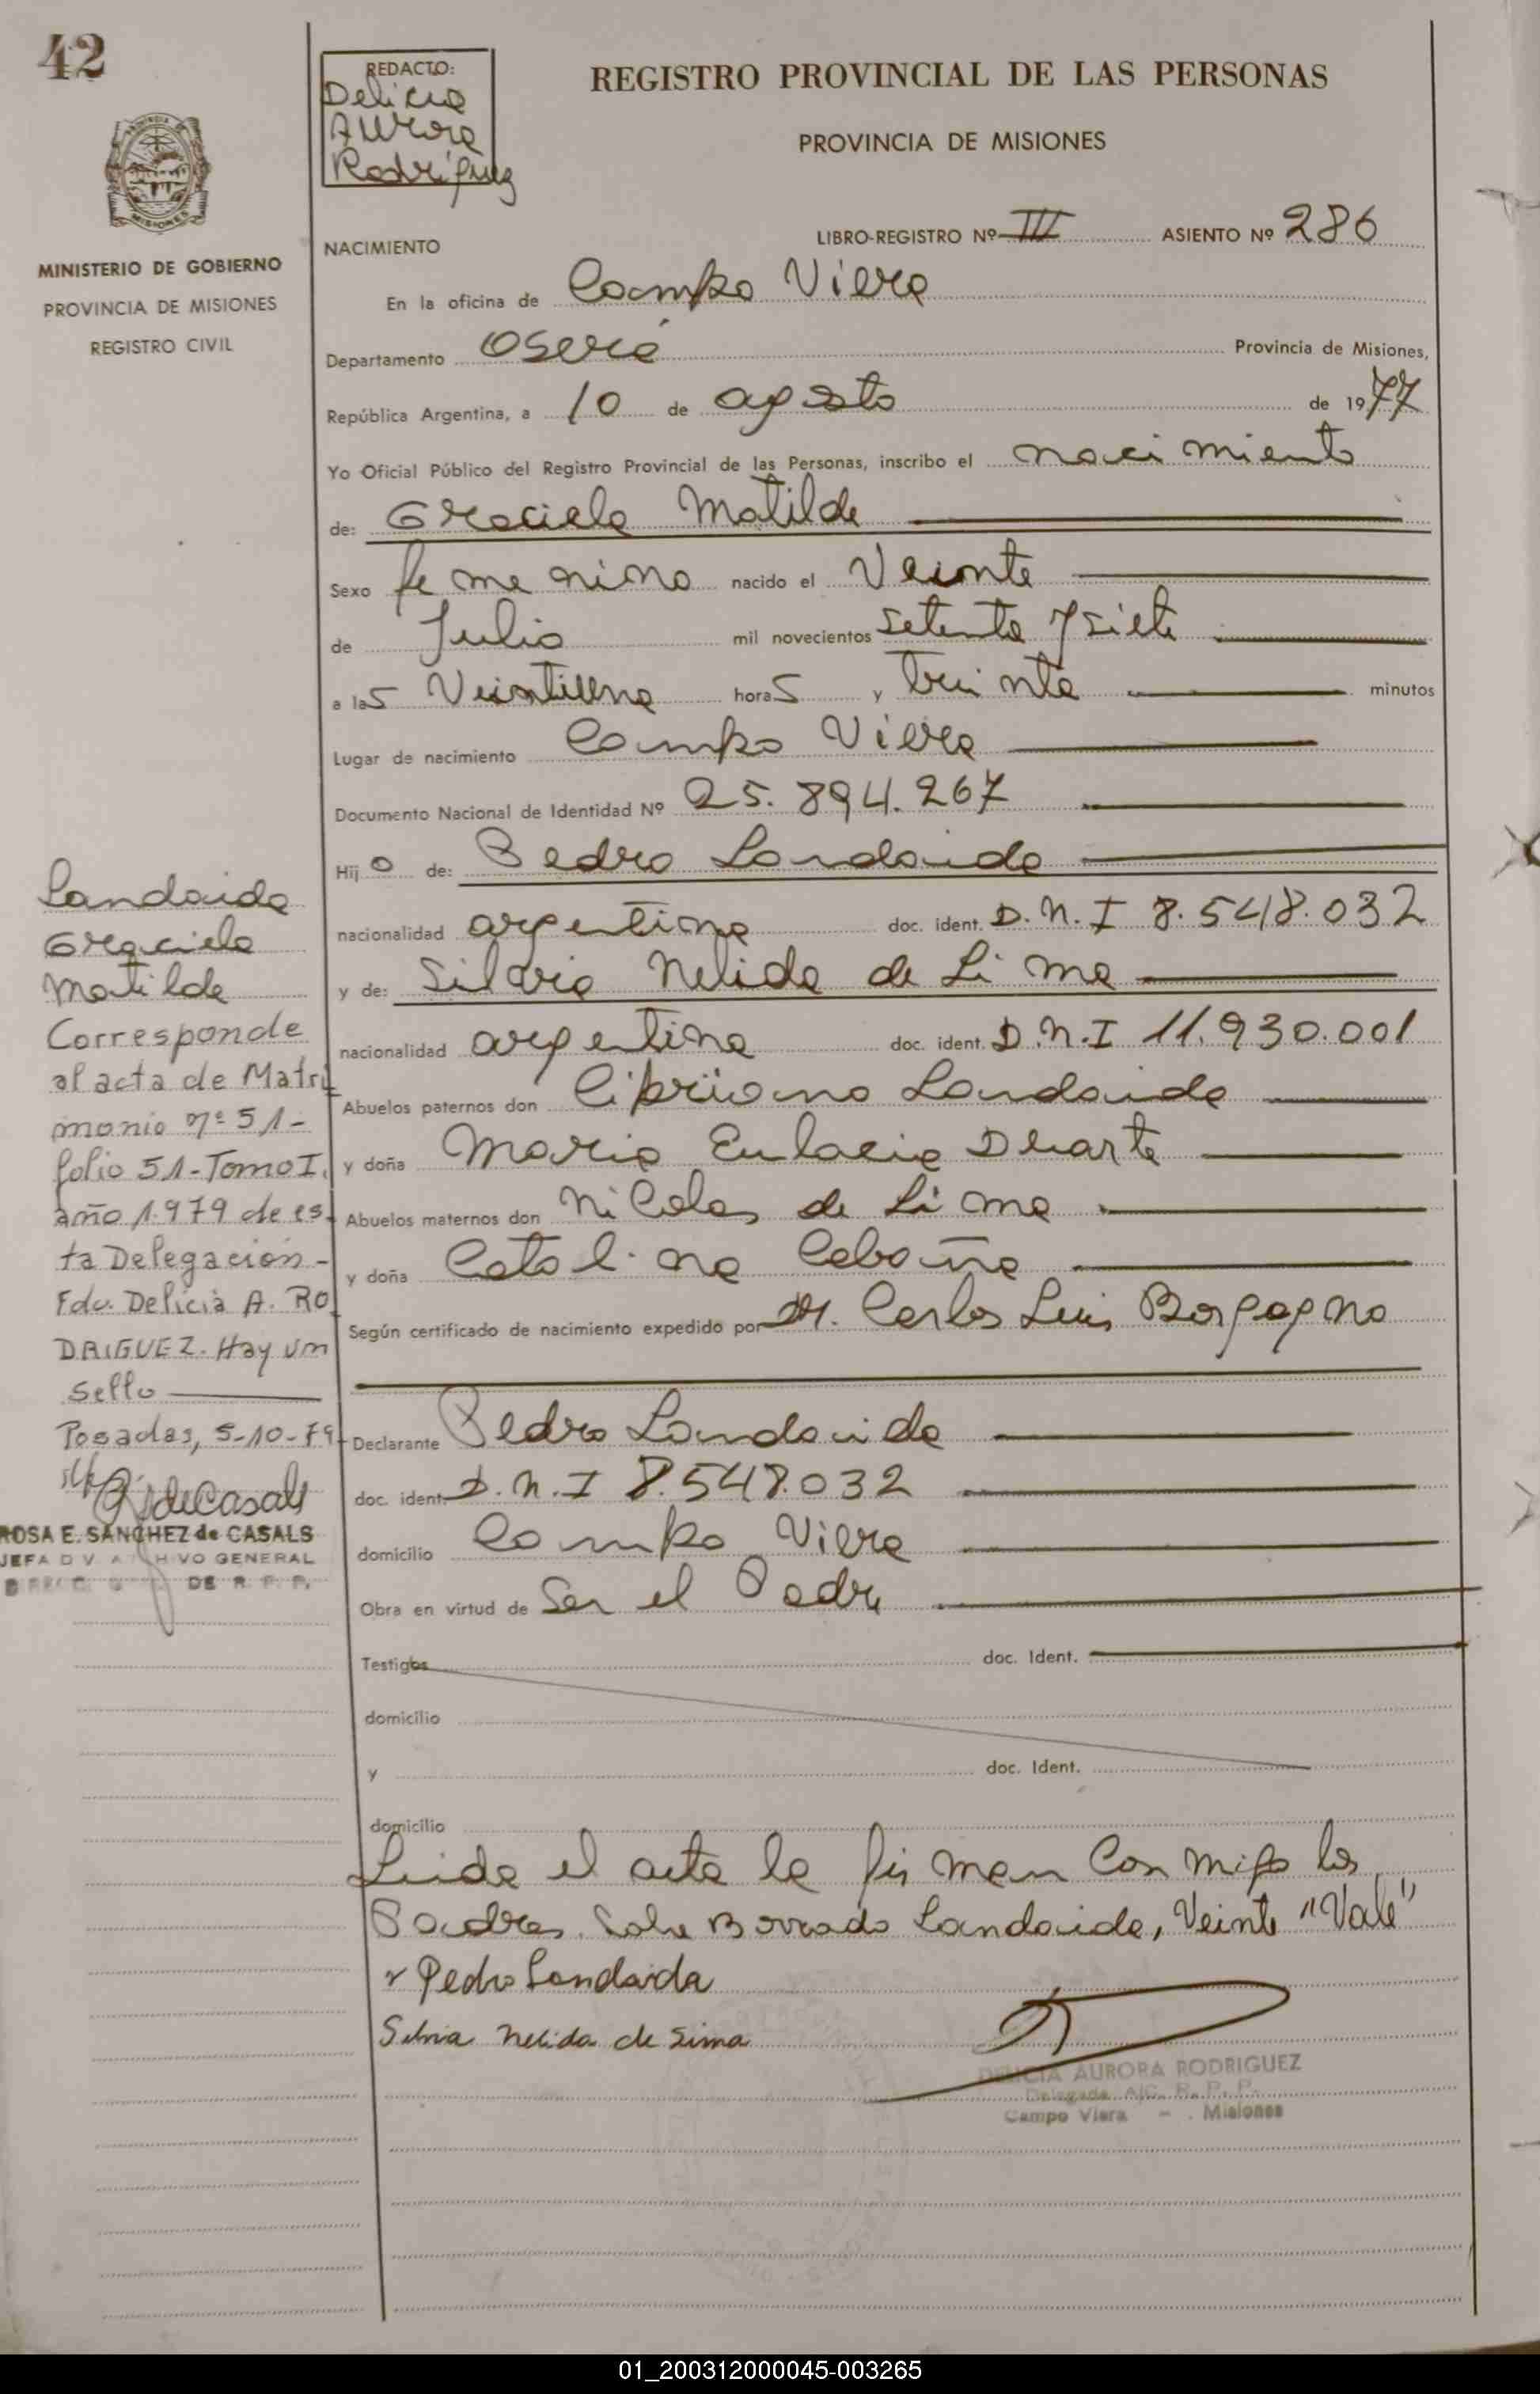 42
REDACTO:
Delicia
Aurora
Rodríguez
REGISTRO PROVINCIAL DE LAS PERSONAS
PROVINCIA DE MISIONES
MISIONES
MINISTERIO DE GOBIERNO
PROVINCIA DE MISIONES
REGISTRO CIVIL
NACIMIENTO
LIBRO-REGISTRO Nº III ASIENTO Nº 286
En la oficina de Campo Viera
Departamento Oberá Provincia de Misiones,
República Argentina, a 10 de agosto de 1977
Yo Oficial Público del Registro Provincial de las Personas, inscribo el nacimiento
de: Graciela Matilde
Sexo femenino nacido el Veinte
de Julio mil novecientos setenta y siete
a las Veintiuna horas y treinta minutos
Lugar de nacimiento Campo Viera
Documento Nacional de Identidad Nº 25.894.267
Hijo de: Pedro Landaida
nacionalidad argentina doc. ident. D.N.I 8.548.032
y de: Silvia Nelida de Lima
nacionalidad argentina doc. ident. D.N.I 11.930.001
Abuelos paternos don Cipriano Landaida
y doña Maria Eulacia Duarte
Abuelos maternos don Nicolas de Lima
y doña Catalina Cabaña
Según certificado de nacimiento expedido por Dr. Carlos Luis Borgogno
Declarante Pedro Landaida
doc. ident. D.N.I 8.548.032
domicilio Campo Viera
Obra en virtud de Ser el Padre
Testigos doc. Ident.
domicilio
y doc. Ident.
domicilio
Leida el acta la firman conmigo los
Padres. Sobre Borrado Landaida, Veinte "Vale"
Pedro Landaida
Silvia Nelida de Lima
DELICIA AURORA RODRIGUEZ
Delegada A/C. R. P. P.
Campo Viera - Misiones
Landaida
Graciela
Matilde
Corresponde
al acta de Matri
monio nº 51-
folio 51-Tomo I.
año 1.979 de es
ta Delegación-
Fdo. Delicia A. RO
DRIGUEZ. Hay un
Sello
Posadas, 5-10-79
deCasals
ROSA E. SANCHEZ de CASALS
JEFA DIV. ARCHIVO GENERAL
DE R. P. P.
01_200312000045-003265